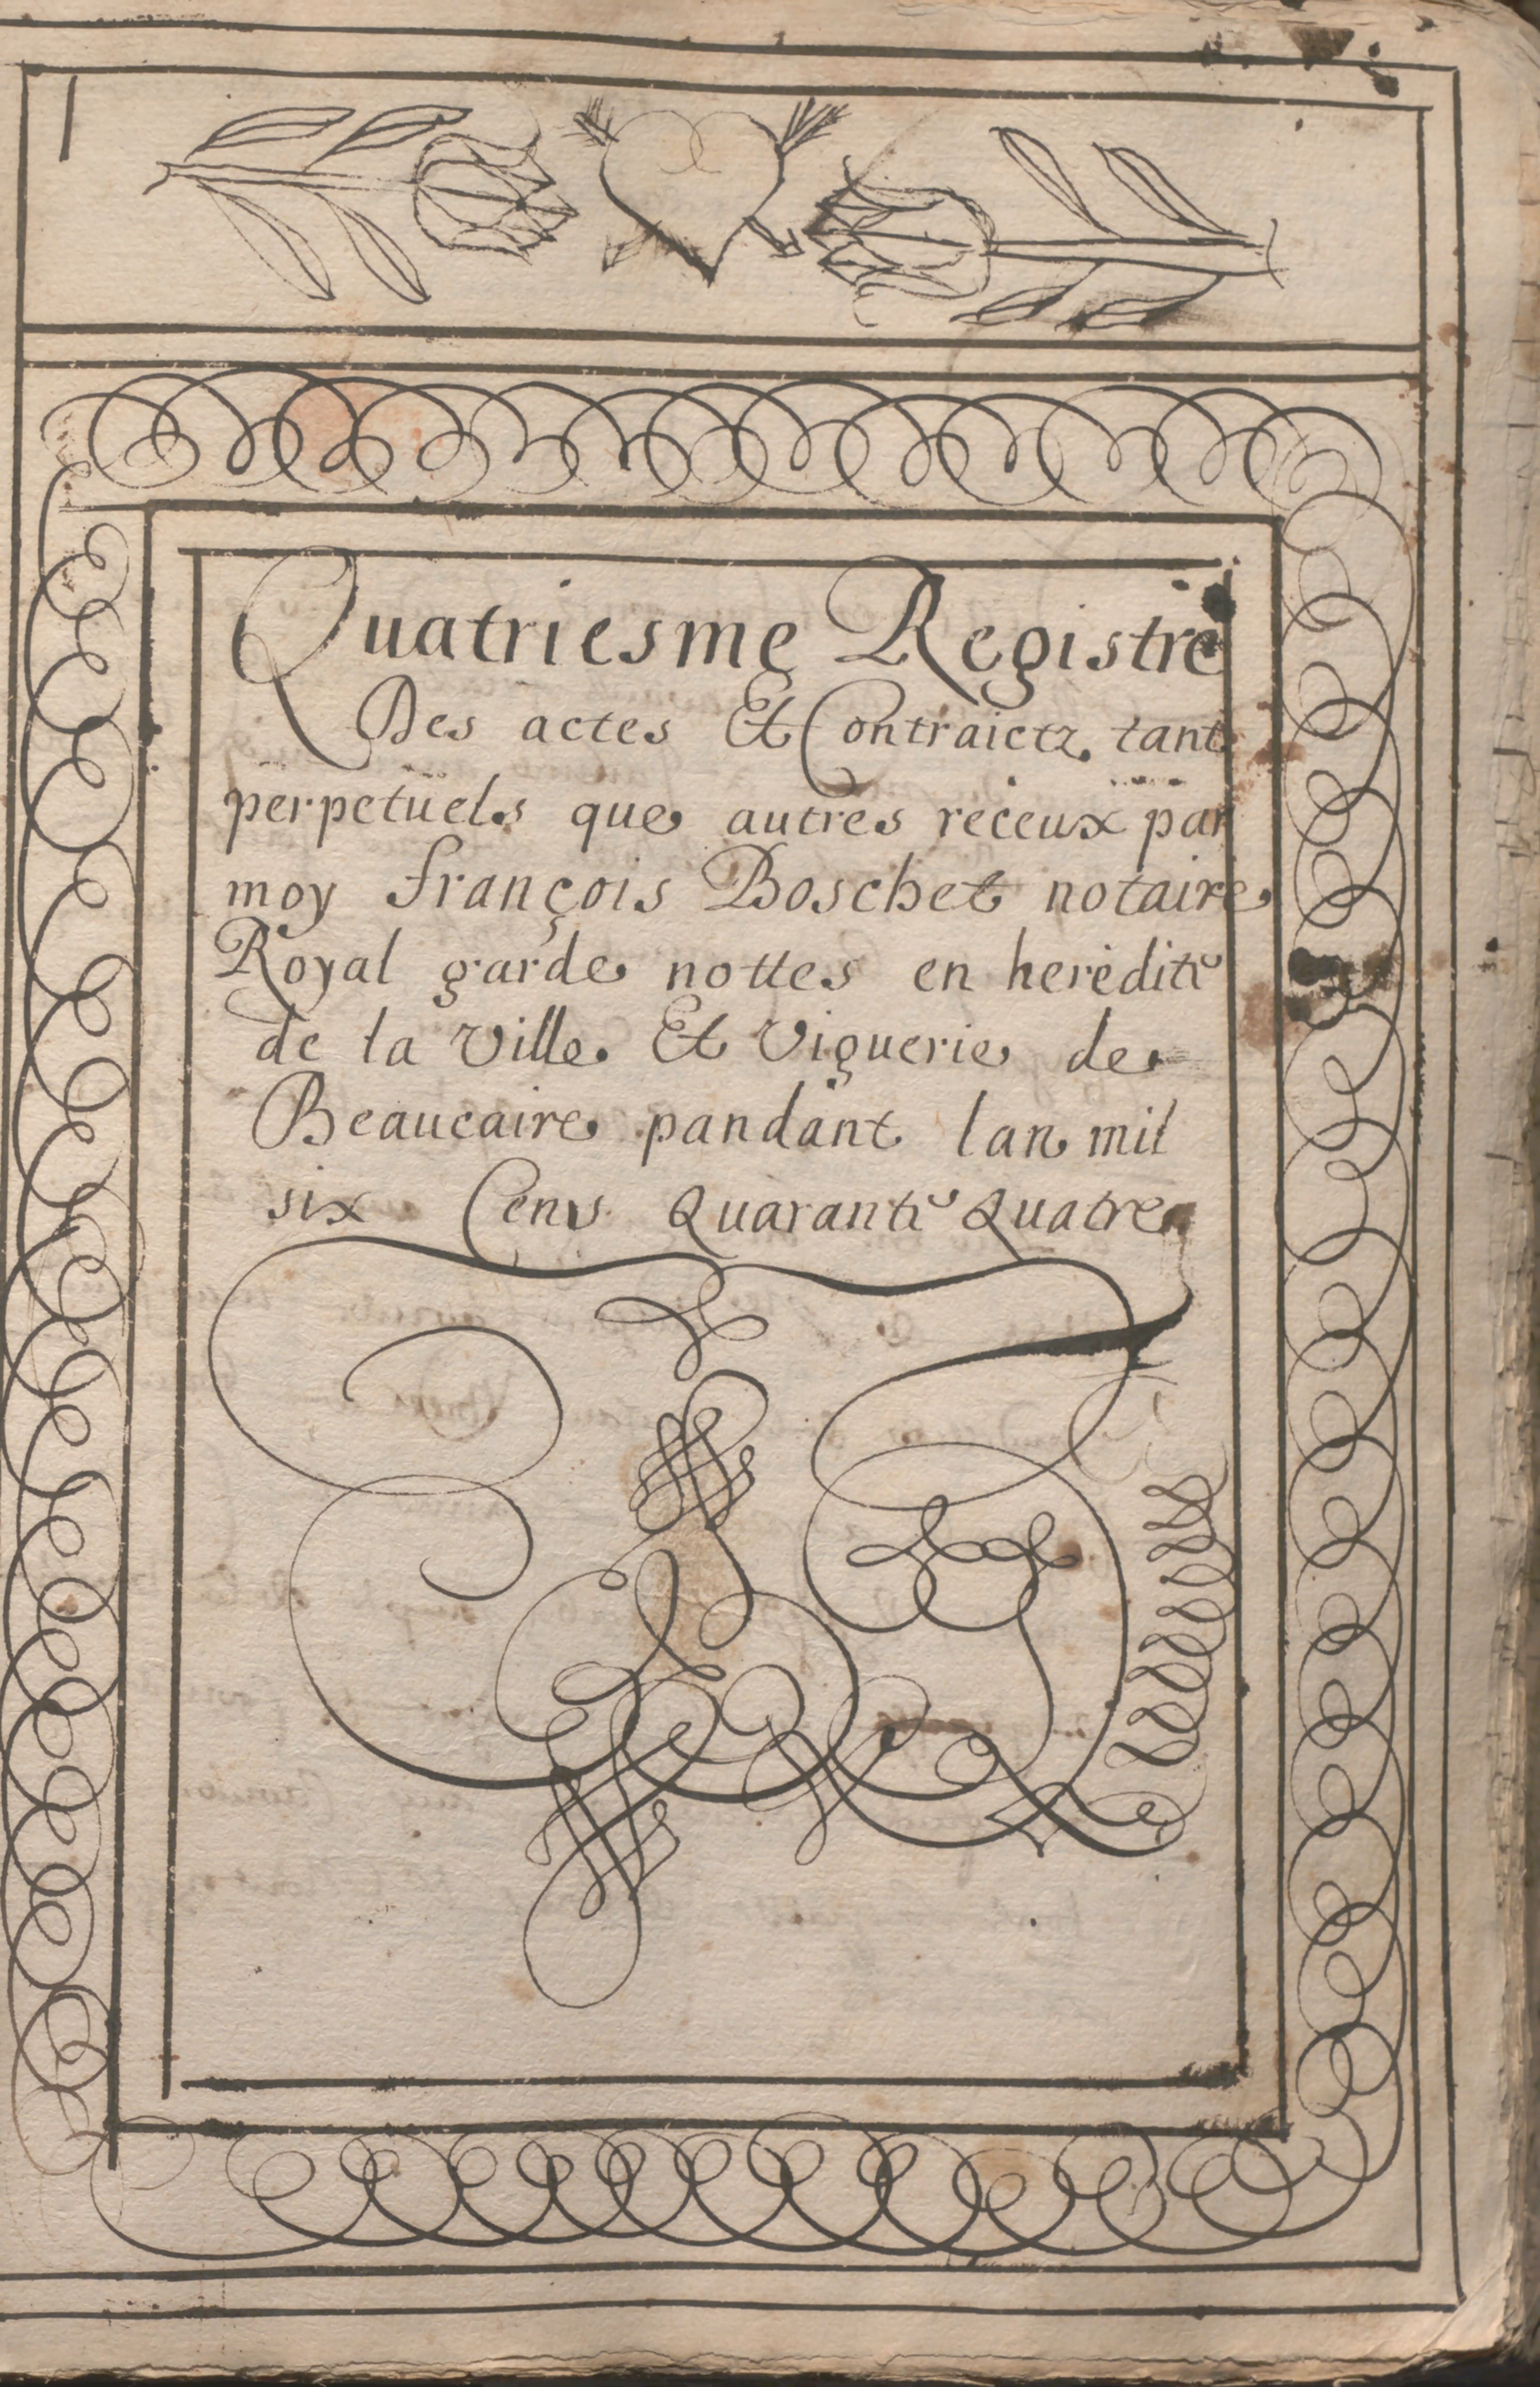 1
Quatriesme Registre
Des actes Et Contraictz tant
perpetuels que autres receux par
moy françois Boschet notaire
Royal garde nottes en heredité
de la Ville Et Viguerie de
Beaucaire pandant lan mil
six Cens Quarante Quatre